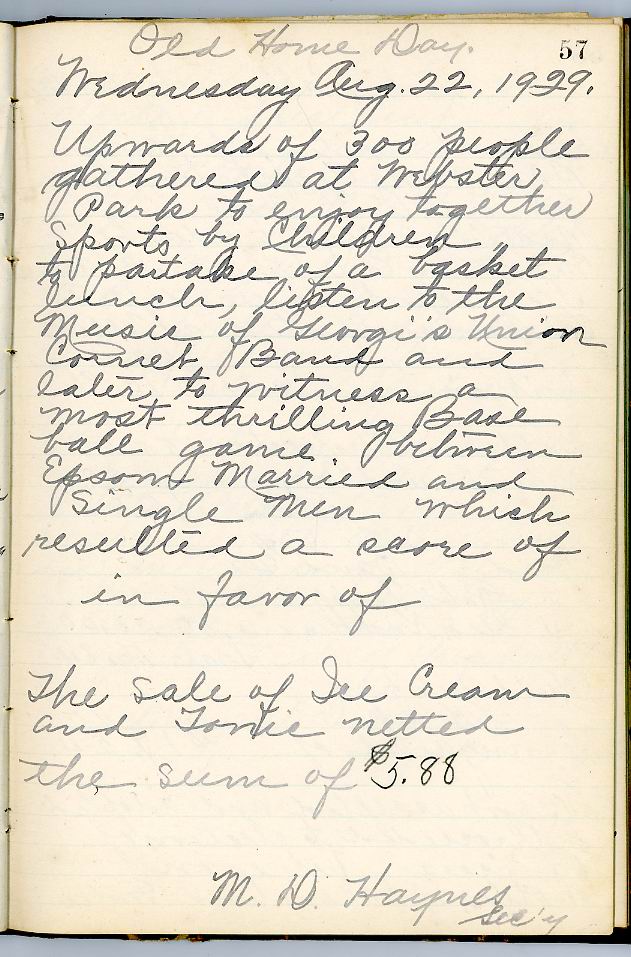 Old Home Day.
57
Wednesday Aug. 22, 1929.
Upwards of 300 people
gathered at Webster
Park to enjoy together
Sports by Children,
to partake of a basket
lunch, listen to the
Music of Georgi's Union
Cornet Band and
later to witness a
most thrilling Base
ball game between
Epsom Married and
Single Men which
resulted a score of
in favor of
The sale of Ice Cream
and Tonic netted
the sum of $5.88
M. D. Haynes
Sec'y